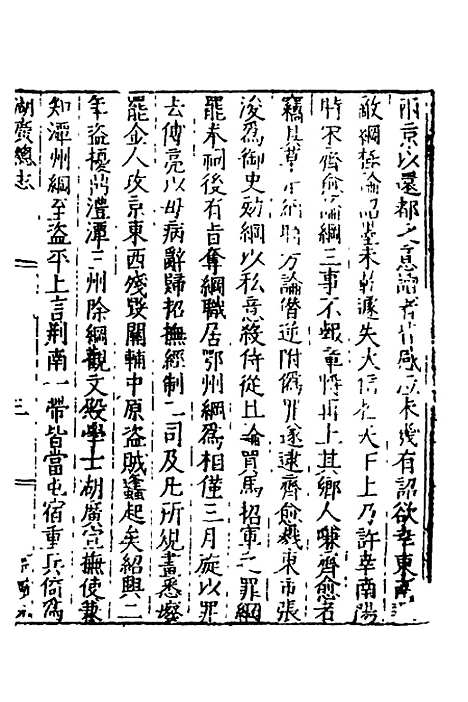 兩京以還都之意讀者皆感泣未幾有詔欲幸東南
敵綱極論詔墨未乾遽失大信於天下上乃許幸南陽
時宋齊愈論綱三事不報章將再上其鄉人嗛齊愈者
竊其草示綱時方論僭逆附僞罪遂逮齊愈戮東市張
浚爲御史劾綱以私意殺侍從且論買馬招軍之罪綱
罷奉祠後有旨奪綱職居鄂州綱爲相僅三月旋以罪
去傅亮以母病辭歸招撫經制二司及凡所規畫悉廢
罷金人攻京東西殘毀關輔中原盜賊蠭起矣紹興二
年盜擾鼎澧潭三州除綱觀文殿學士湖廣宣撫使兼
知潭州綱至盜平上言荆南一帶皆當屯宿重兵倚爲
湖廣總志
三